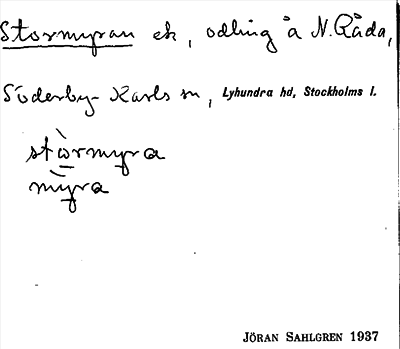 Stormyran ek, odling å N. Råda,
Söderby-Karls sn, Lyhundra hd, Stockholms l.
stòrmyra
mỳra
JÖRAN SAHLGREN 1937